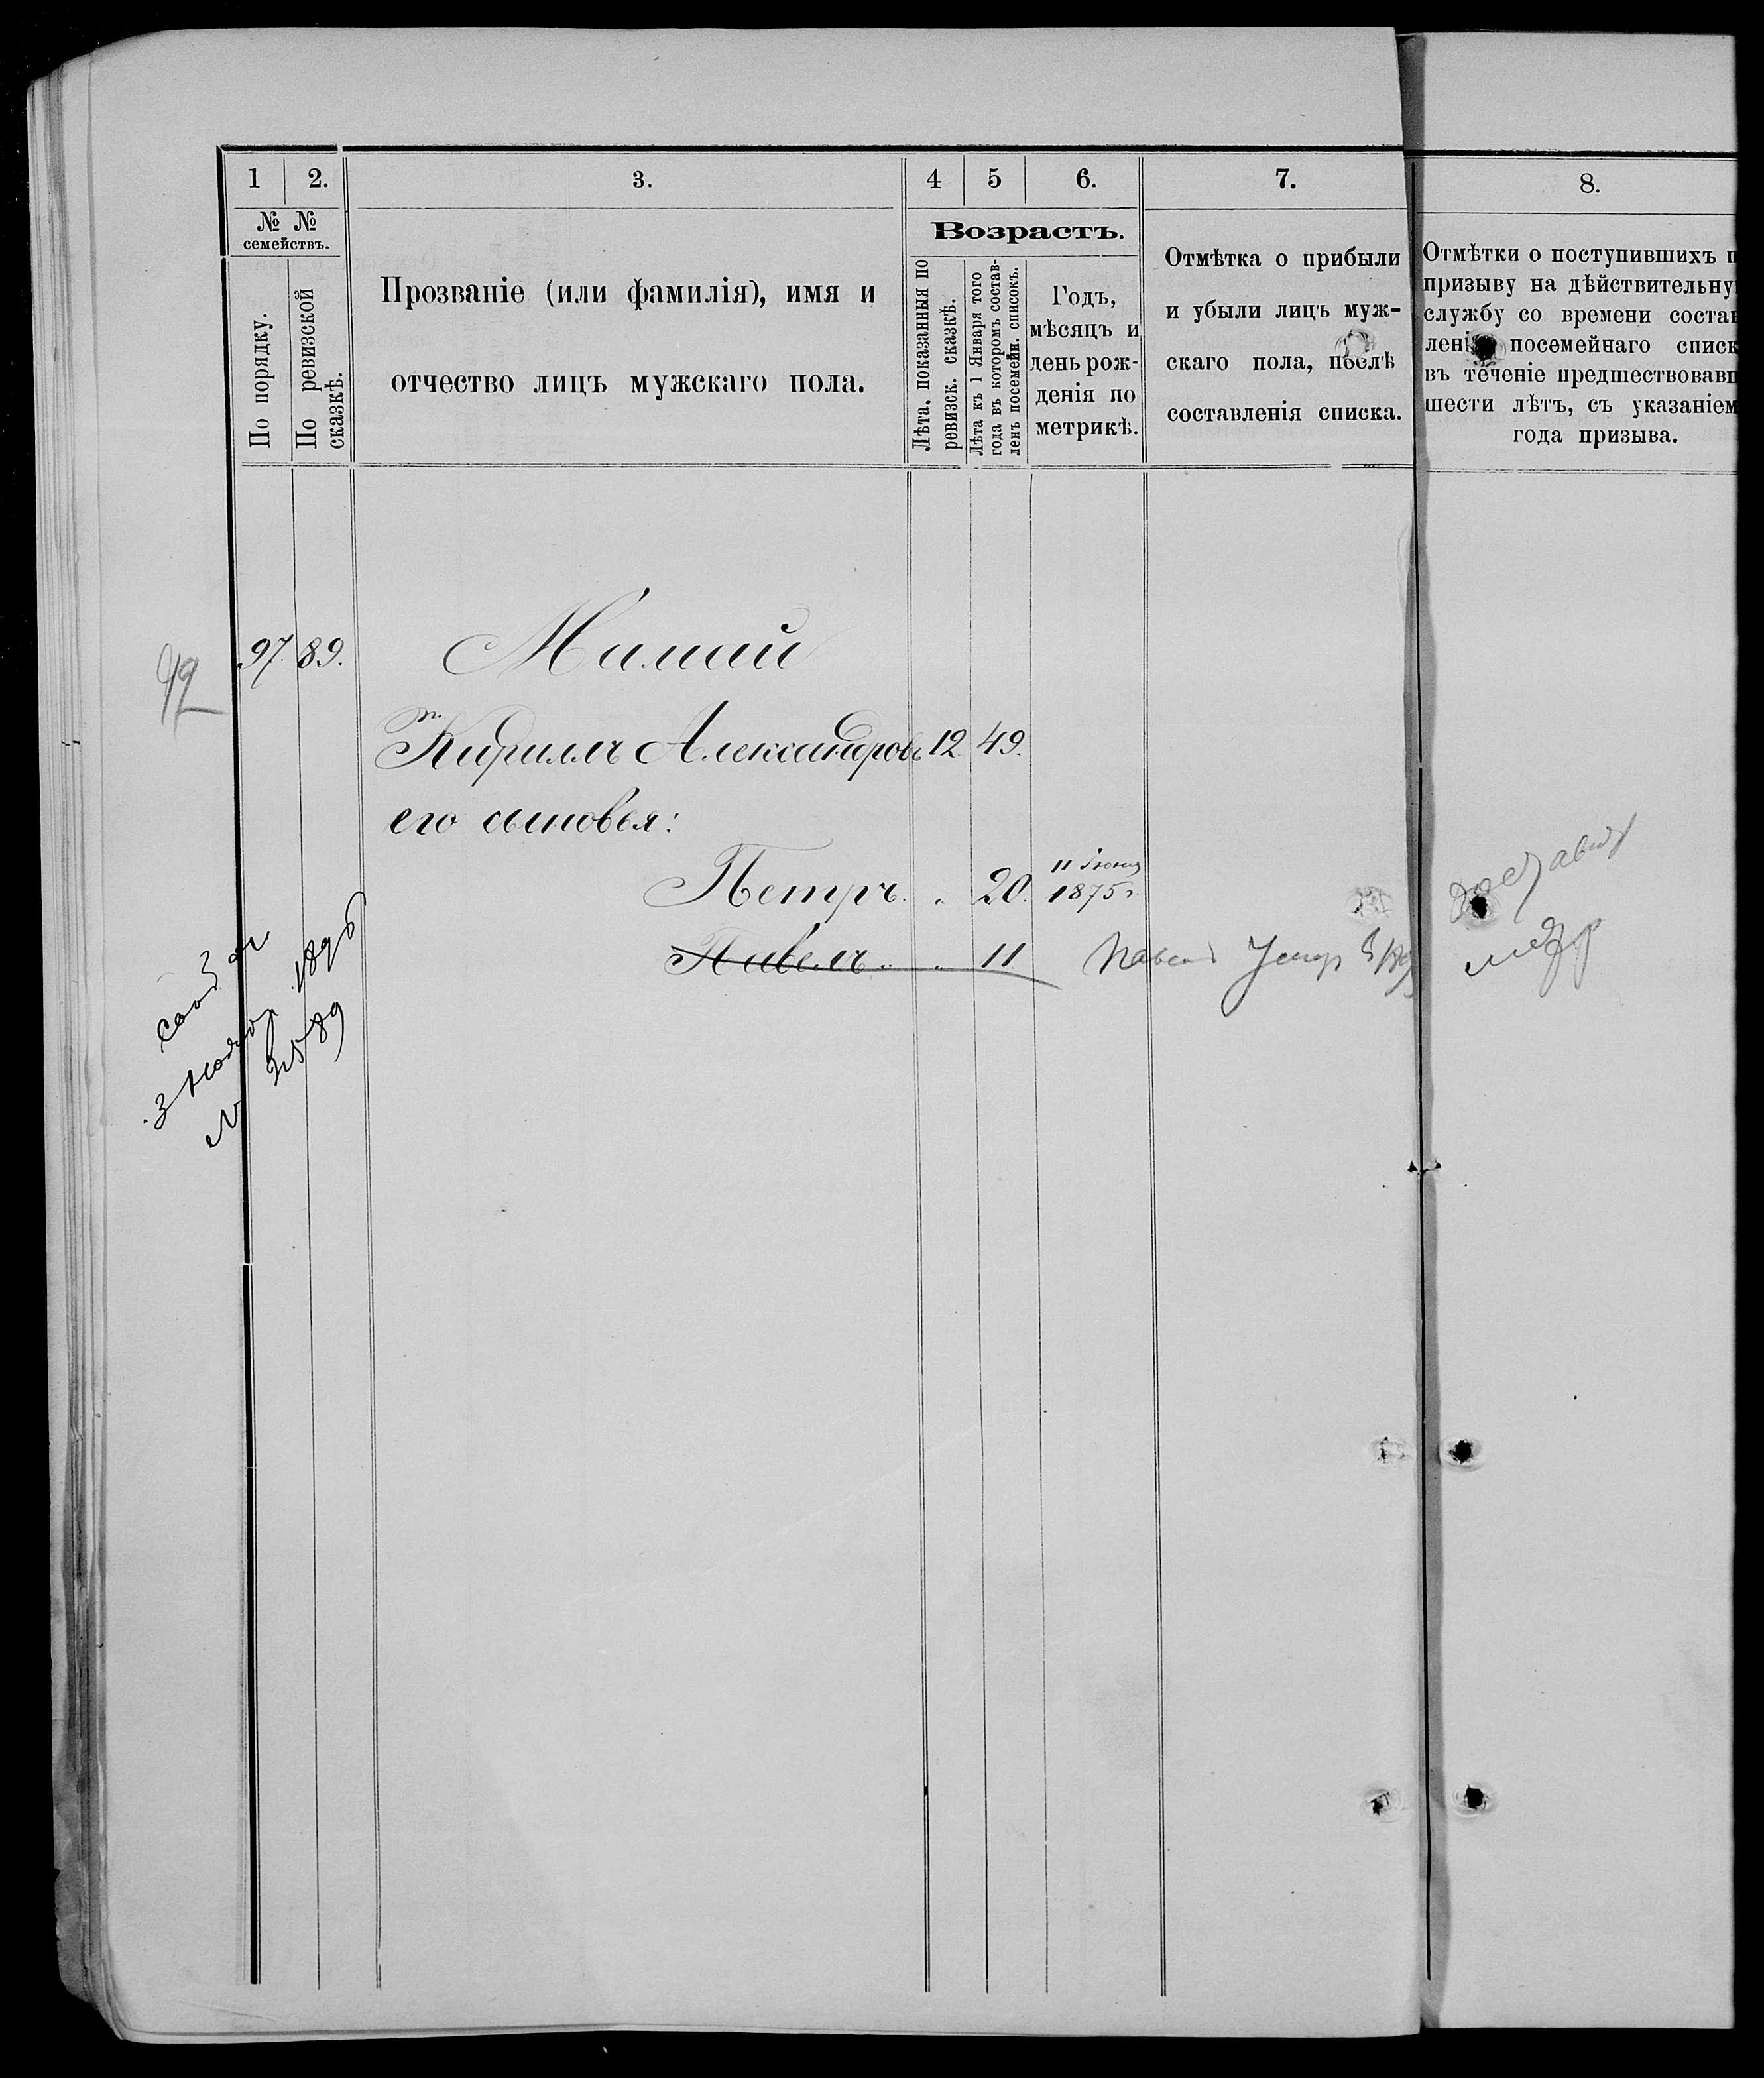 1 2. 3. 4 5 6. 7. 8.
№ № семействъ.
По порядку.
По ревизской сказкѣ.
Прозваніе (или фамилія), имя и
отчество лицъ мужскаго пола.
Возрастъ.
Лѣта, показанныя по
ревизск. сказкѣ.
Лѣта къ 1 Января того
года въ которомъ состав-
ленъ посемейн. списокъ.
Годъ,
мѣсяцъ и
день рож-
денія по
метрикѣ.
Отмѣтка о прибыли
и убыли лицъ муж-
скаго пола, послѣ
составленія списка.
Отмѣтки о поступившихъ п
призыву на дѣйствительну
службу со времени состав
леніи посемейнаго списк
въ теченіе предшествовавш
шести лѣтъ, съ указаніем
года призыва.
97. 89. Мамай
92
Кириллъ Александровъ 12 49.
его сыновья:
11 Іюня
Петръ. 20. 1875 г.
Павелъ 11 Павелъ Умеръ
1896
3
№ 2589